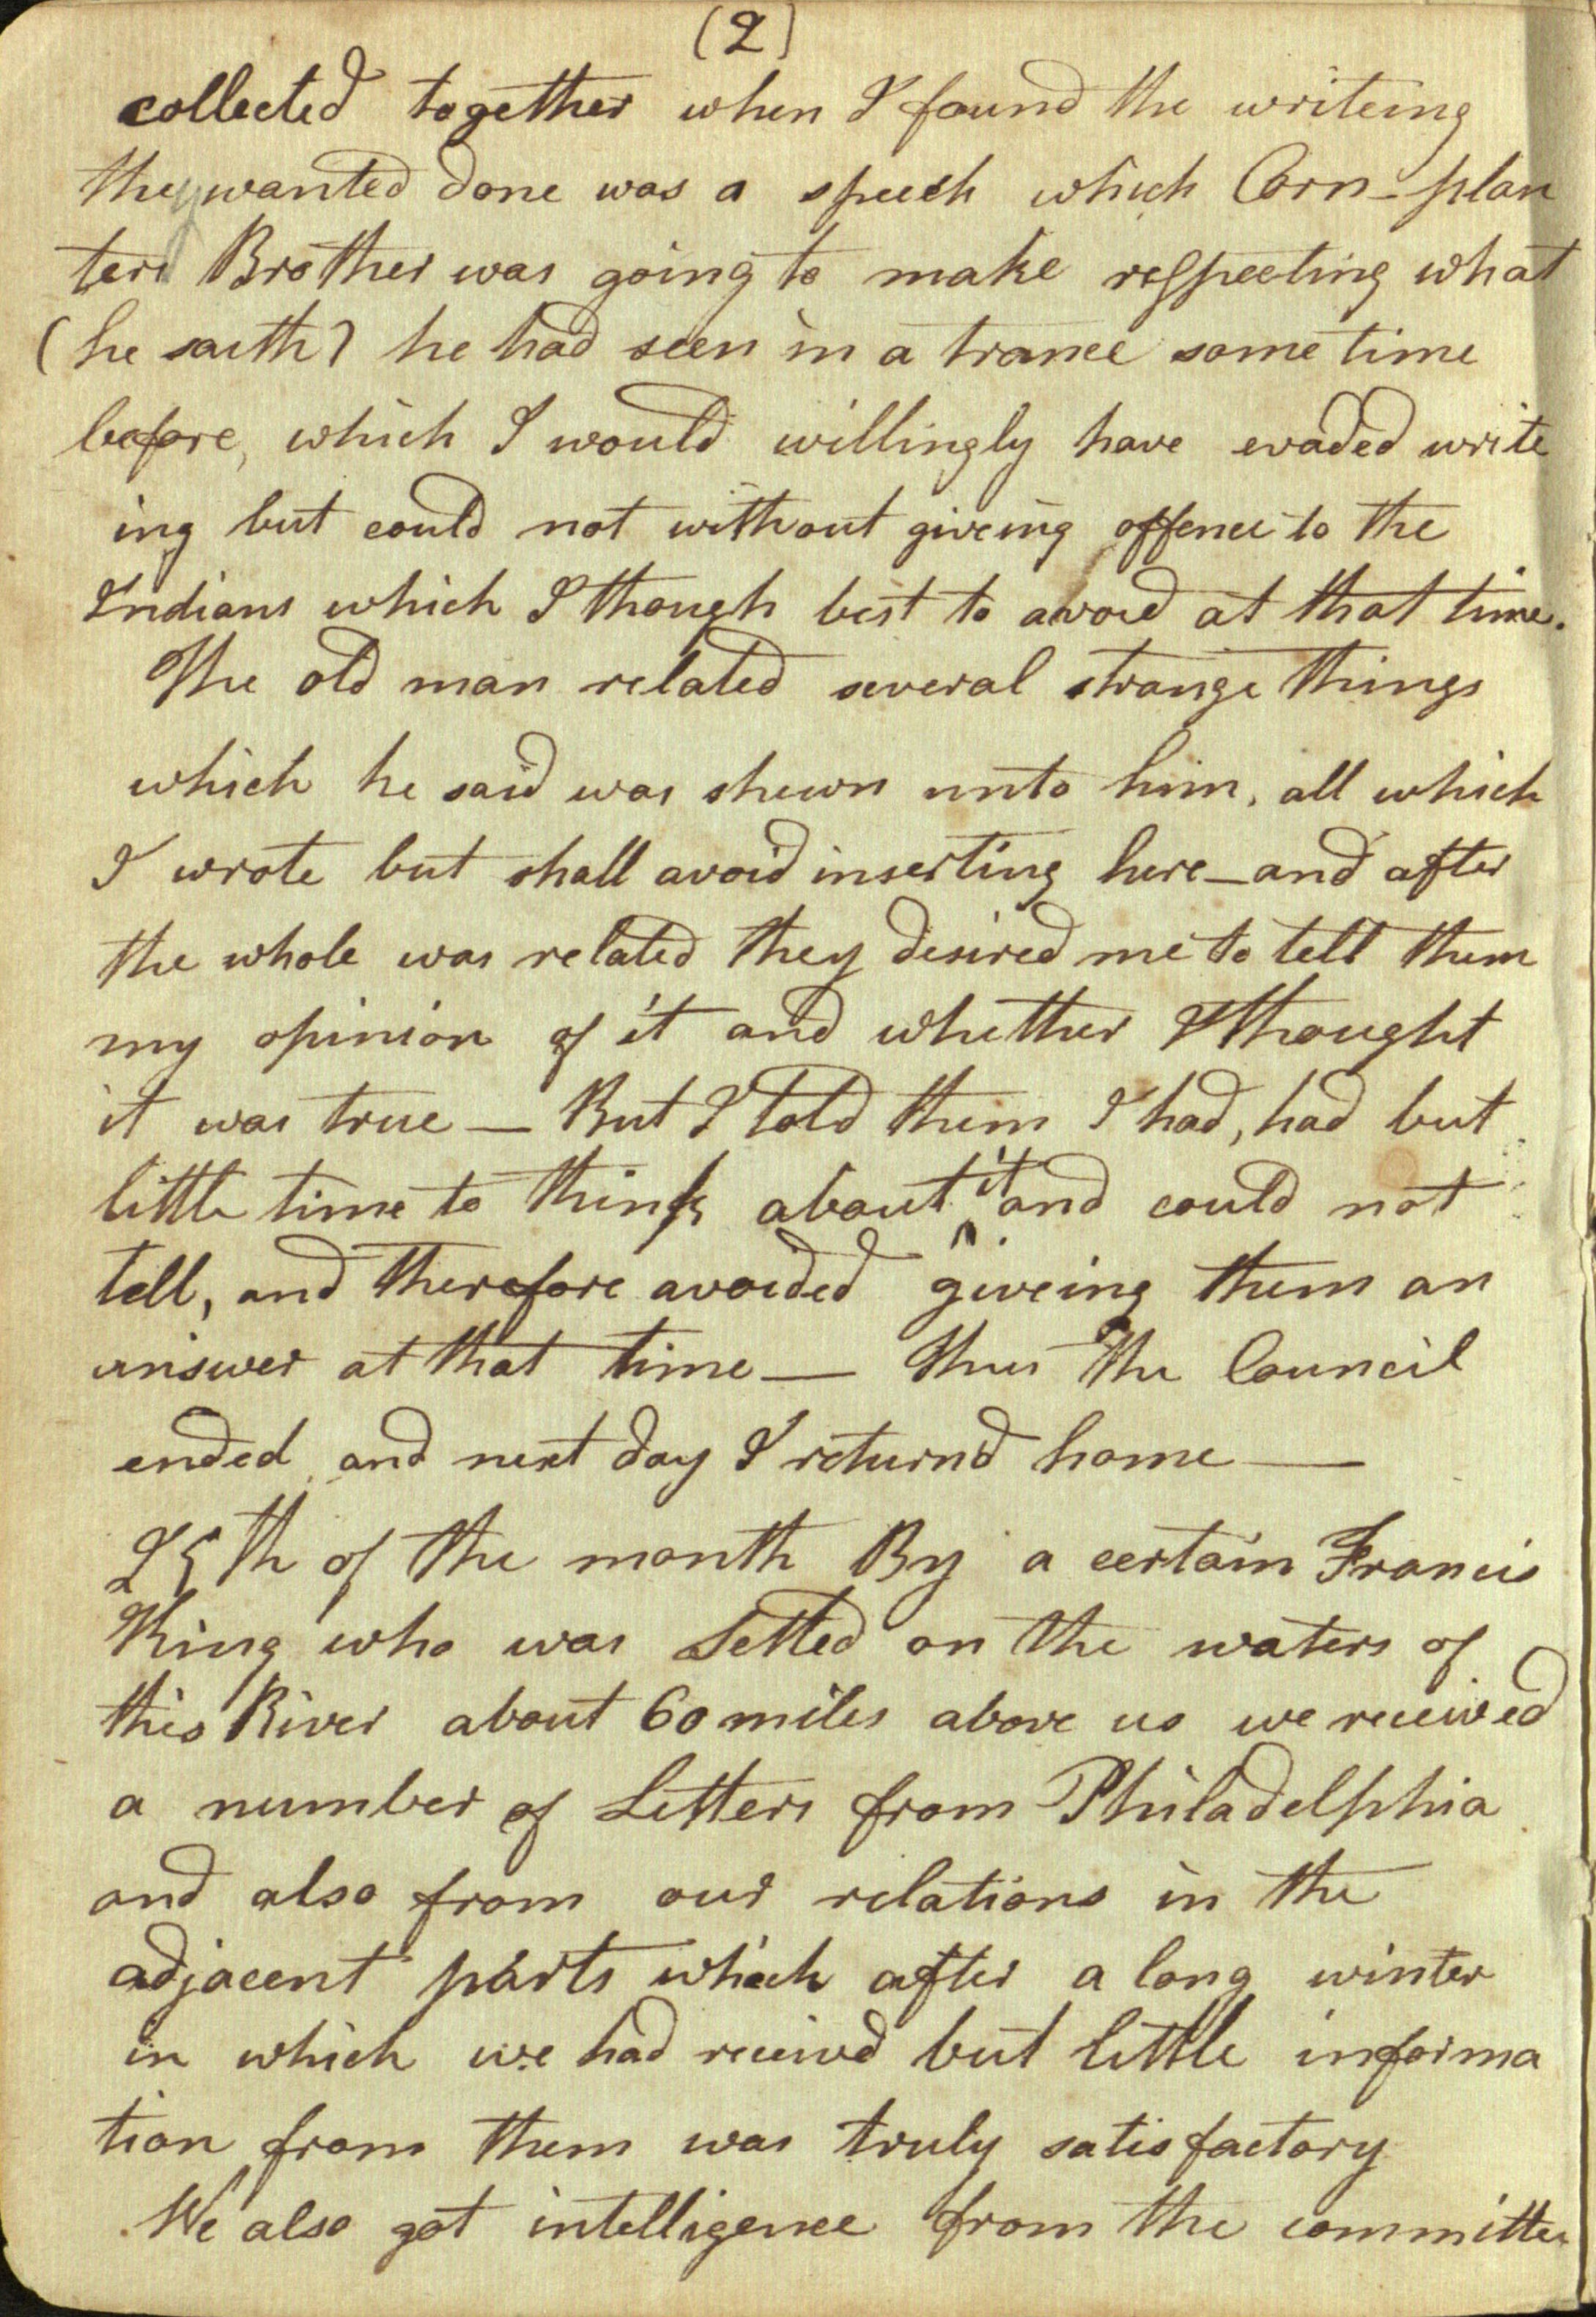 (2)
collected together when I found the writeing
they wanted done was a speech which Corn-plan
ters Brother was going to make respecting what
(he saith) he had seen in a trance some time
before, which I would willingly have evaded write
ing but could not without giveing offence to the
Indians which I though best to avoid at that time.
The old man related several strange things
which he said was shewn unto him, all which
I wrote but shall avoid inserting here - and after
the whole was related they desired me to tell them
my opinion of it and whether I thought
it was true — But I told them I had, had but
little time to think about it and could not
tell, and therefore avoided giveing them an
answer at that time — thus the Council
ended and next day I returnd home —
25th of the month By a certain Francis
King who was Setled on the waters of
this River about 60 miles above us we received
a number of Letters from Philadelphia
and also from our relations in the
adjacent parts which after a long winter
in which we had received but little informa
tion from them was truly satisfactory
We also got intelligence from the committee